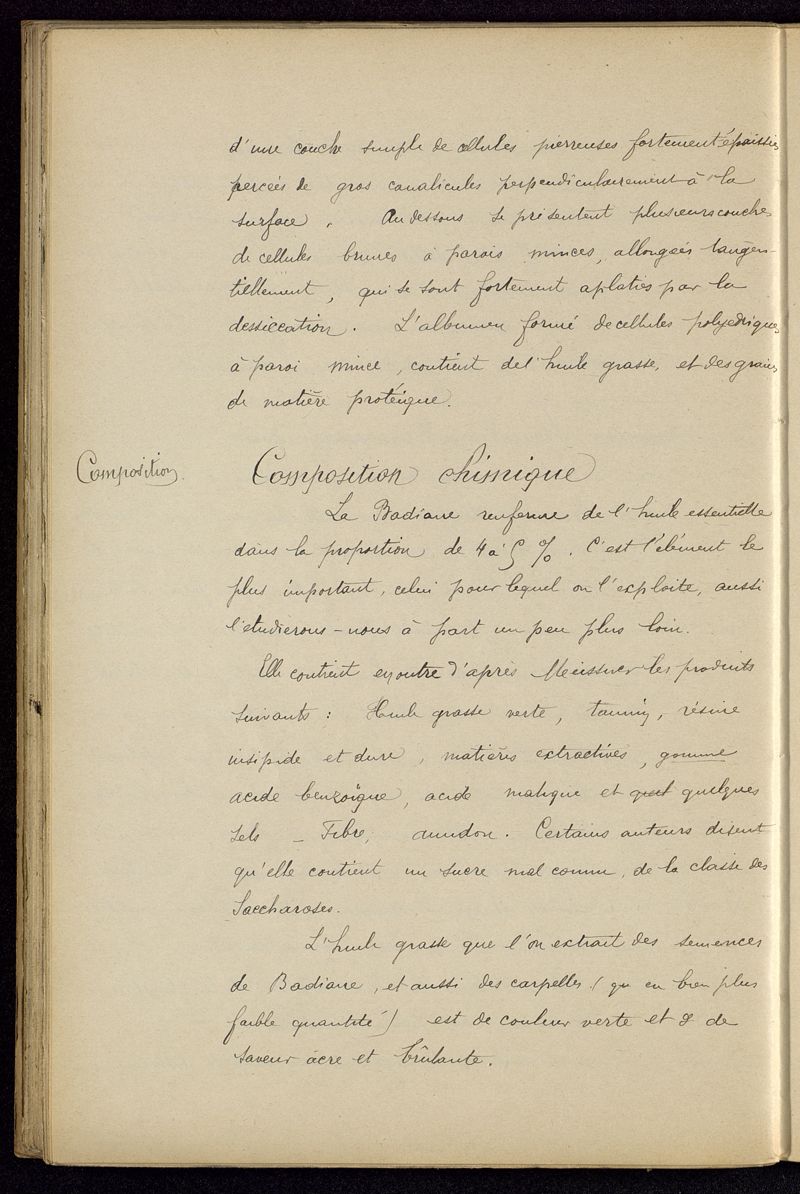 d'une couche simple de cellules pierreuses fortement épaissies
percées de gros canalicules perpendiculairement à la
surface. Au dessous se présentent plusieurs couches
de cellules brunes à parois minces, allongées tangen-
tiellement, qui se sont fortement aplaties par la
dessiccation. L'albumen formé de cellules polyédriques
à paroi mince, contient de l'huile grasse, et des grains
de matière protéique.
Composition.
Composition chimique
La Badiane renferme de l'huile essentielle
dans la proportion de 4 à 5 %. C'est l'élément le
plus important, celui pour lequel on l'exploite, aussi
l'étudierons-nous à part un peu plus loin.
Elle contient en outre d'après Meissner les produits
suivants : Huile grasse verte, tannin, résine
insipide et dure, matières extractives, gomme
acide benzoïque, acide malique et quel quelques
sels – Fibre, amidon. Certains auteurs disent
qu'elle contient un sucre mal connu, de la classe des
Saccharoses.
L'huile grasse que l'on extrait des semences
de Badiane, et aussi des carpelles (qu en bien plus
faible quantité) est de couleur verte et de
saveur âcre et brûlante.